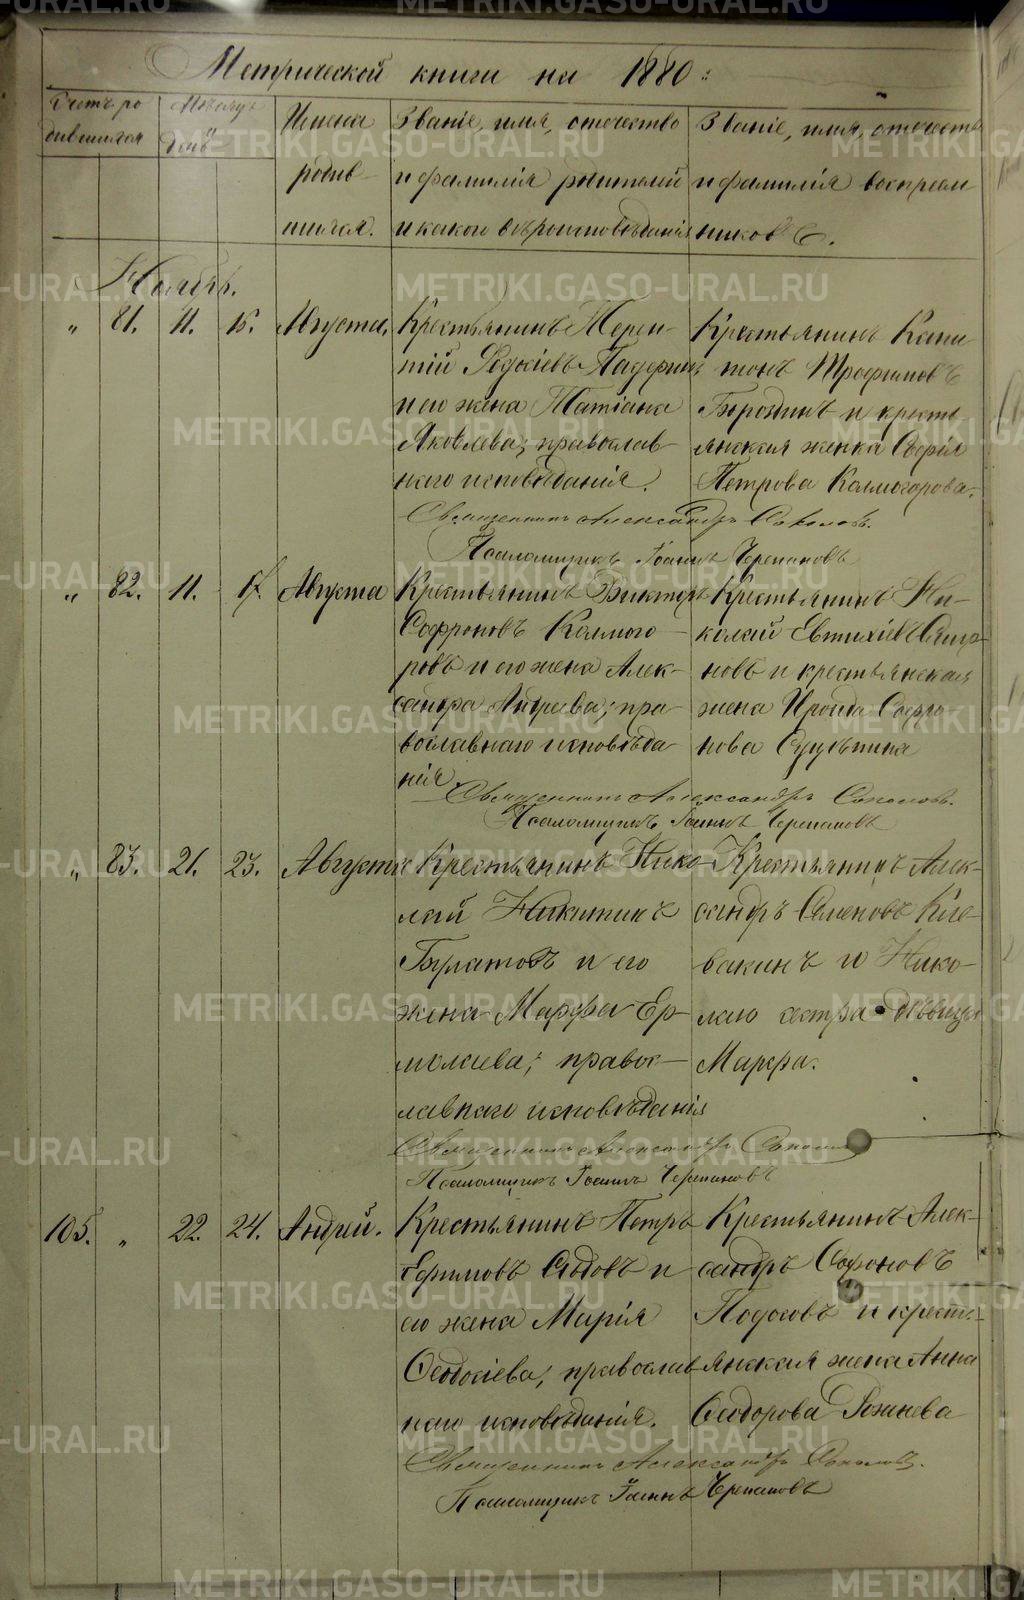 METRIKI.GASO-URAL.RU
Метрической книги на 1880:
Счетъ ро
дившихся
Мѣсяцъ
день
Имена
родив-
шихся.
Званіе, имя, отчество
и фамилія родителей
и какого вѣроисповѣданія
Званіе, имя, отчество
и фамилія воспріем
никовъ
Ноябрь.
" 81. 11. 15. Августа.
Крестьянинъ Терен-
тій
и его жена Татіана
Яковлева; православ-
наго исповѣданія.
Крестьянинъ Капи
тонъ Трофимовъ
Бороздинъ и кресть
янская женка Софія
Петрова Калмогорова.
Священникъ Александръ Соколовъ.
Псаломщикъ Іоаннъ Черепановъ
" 82. 11. Августа
Крестьянинъ Викторъ
Софроновъ Калмого-
ровъ и его жена Алек-
сандра Андреева; пра-
вославнаго исповѣда-
нія.
Крестьянинъ Ни-
колай Евтихіевъ
новъ и крестьянская
жена Ироида Софро-
нова
Священникъ Александръ Соколовъ.
Псаломщикъ Іоаннъ Черепановъ
" 83. 21. 23. Августа
Крестьянинъ Нико-
лай Никитинъ
Булатовъ и его
жена Марфа Ер-
молаева; правос-
лавнаго исповѣданія
Крестьянинъ Алек-
сандръ Семеновъ Кле-
вакинъ и Нико-
лаю сестра дѣвица
Марфа.
Священникъ Александръ Соколовъ
Псаломщикъ Іоаннъ Черепановъ
105. " 22. 24. Андрей.
Крестьянинъ Петръ
Ефимовъ Сѣдовъ и
его жена Марія
Ѳеодосіева; православ
наго исповѣданія.
Крестьянинъ Алек-
сандръ Софоновъ
Подосовъ и кресть-
янская жена Анна
Ѳеодорова
Священникъ Александръ Соколовъ.
Псаломщикъ Іоаннъ Черепановъ